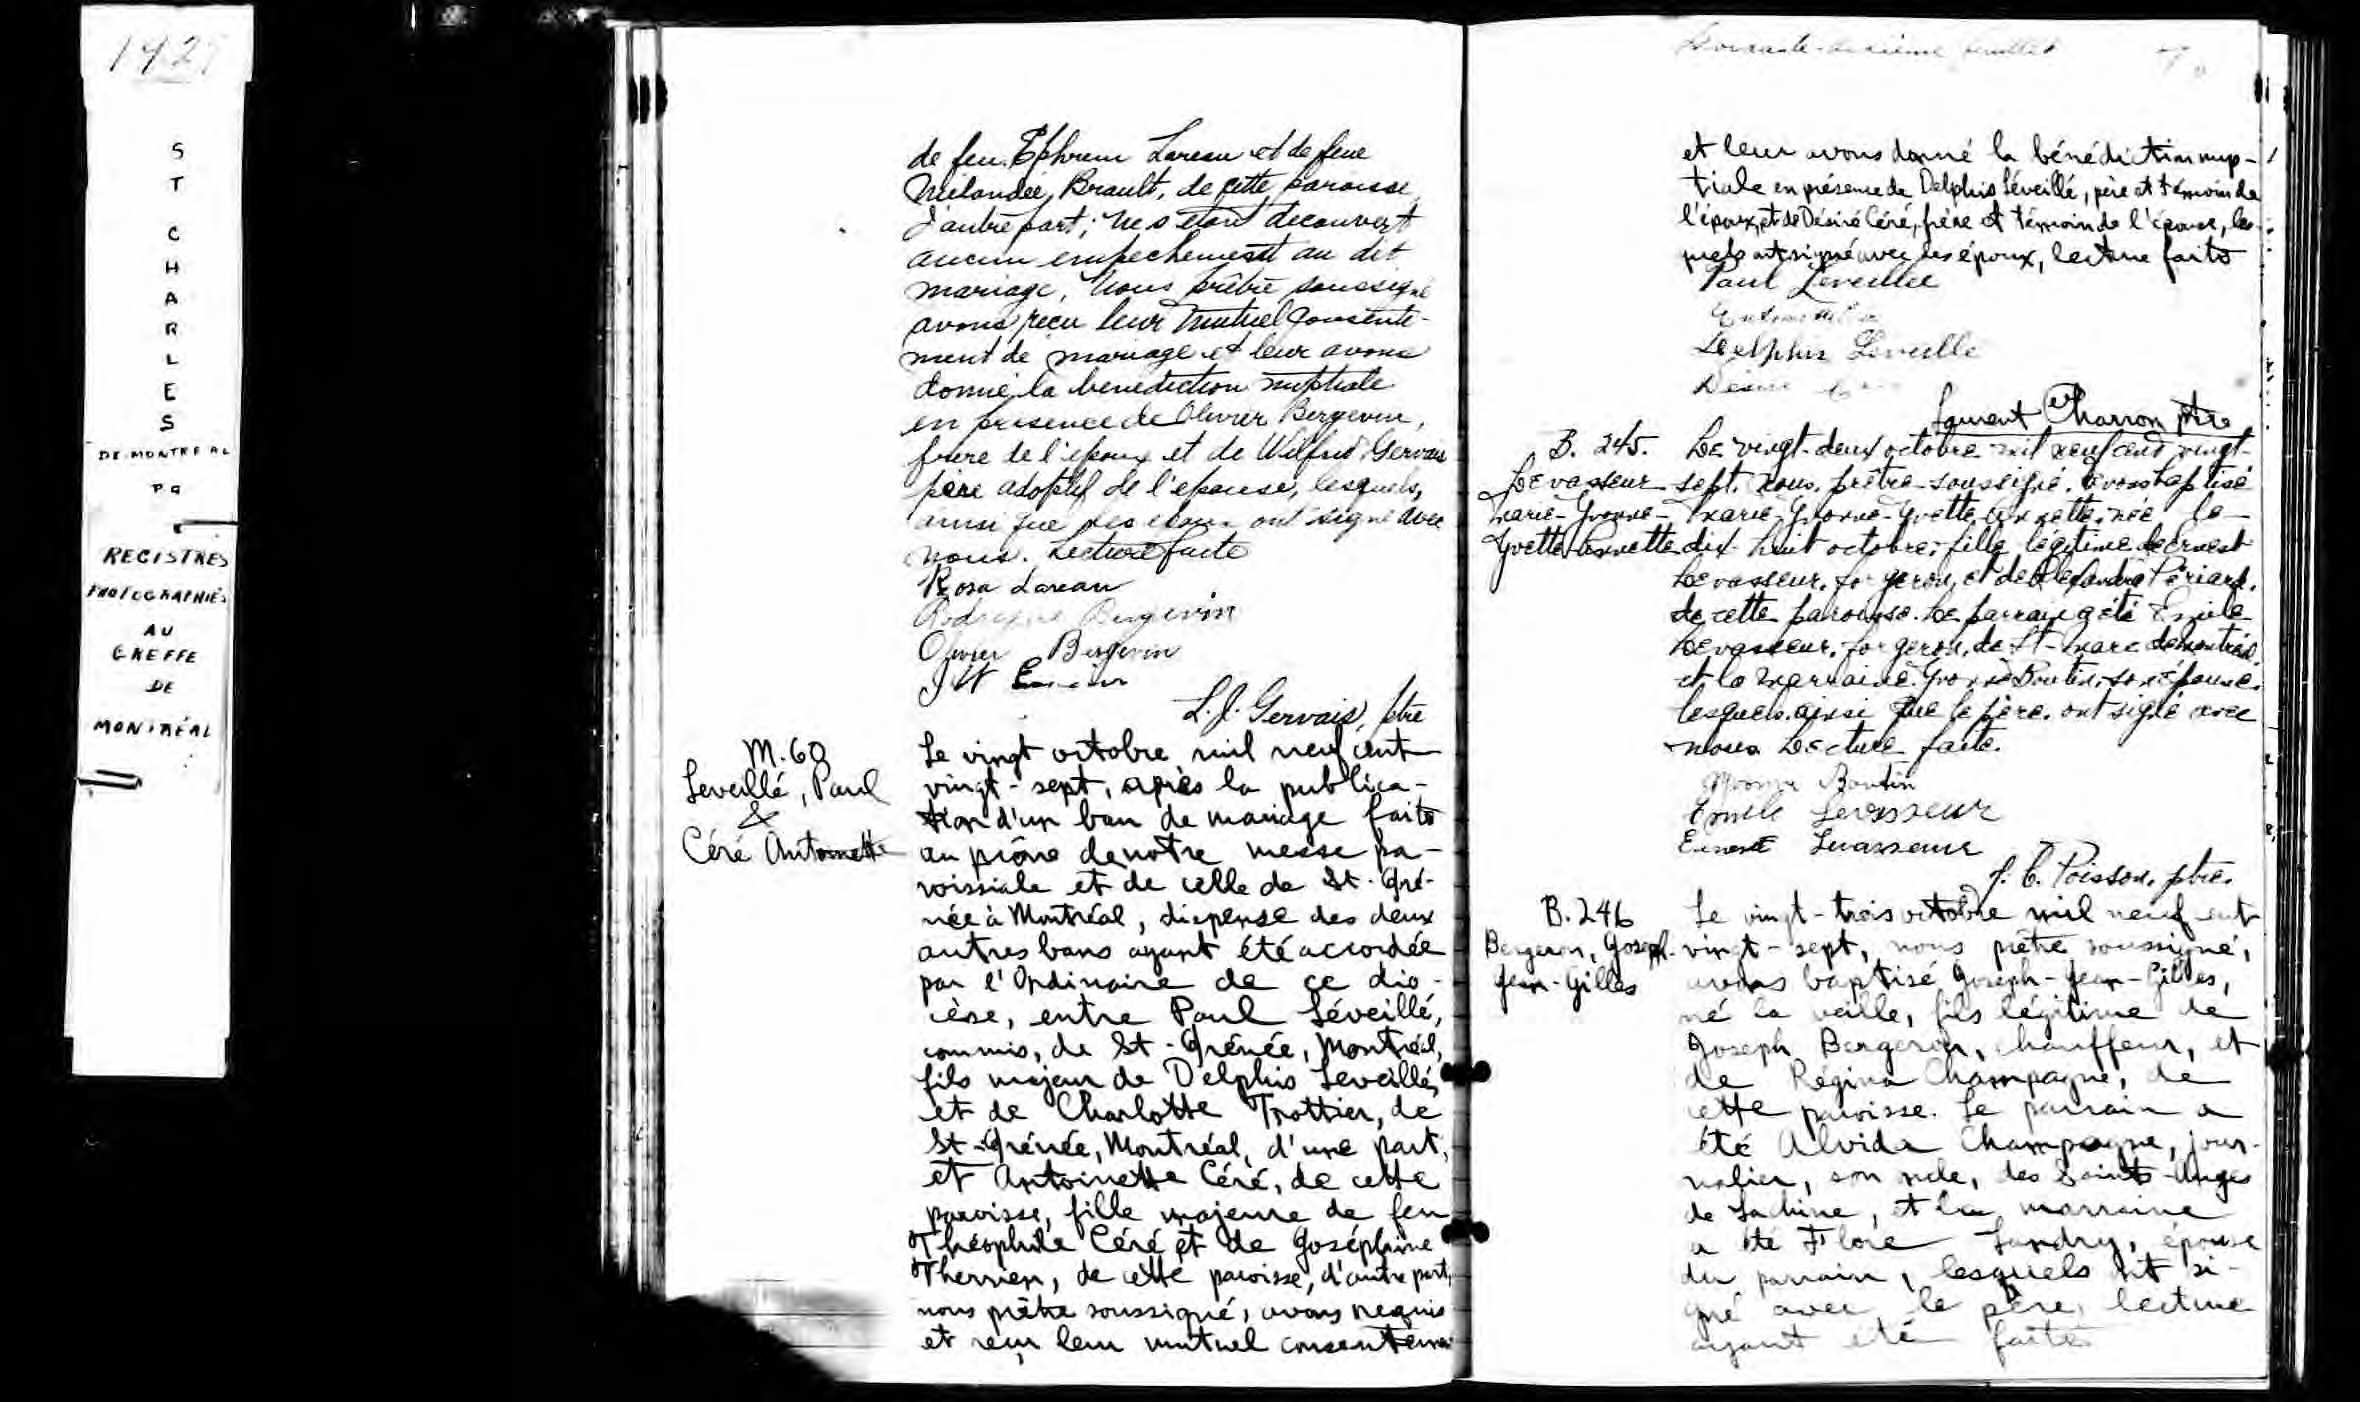 1927
ST CHARLES
DE MONTREAL
P Q
REGISTRES
PHOTOGRAPHIÉS
AU
GREFFE
DE
MONTRÉAL
de feu Ephrem Lareau et de feue
Brault, de cette paroisse
d'autre part; ne s'étant decouvert
aucun empechement au dit
mariage, Nous prêtre soussigné
avons reçu leur mutuel consente-
ment de mariage et leur avons
donné la benediction nuptiale
en presence de Olivier Bergevin,
frere de l'epoux et de Wilfrid Gervais
père adoptif de l'epouse, lesquels,
ainsi que les epoux ont signé avec
nous. Lecture faite
Rosa Lareau
Rodrigue Bergevin
Olivier Bergevin
J W
L. J. Gervais, ptre
M. 60
Leveillé, Paul
&
Céré Antoinette
Le vingt octobre mil neuf cent
vingt-sept, après la publica-
tion d'un ban de mariage faite
au prône de notre messe pa-
roissiale et de celle de St-Iré-
née à Montréal, dispense des deux
autres bans ayant été accordée
par l'Ordinaire de ce dio-
cèse, entre Paul Léveillé,
commis, de St-Irénée, Montréal,
fils majeur de Delphis Leveillé,
et de Charlotte Trottier, de
St-Irénée, Montréal, d'une part,
et Antoinette Céré, de cette
paroisse, fille majeure de feu
Théophile Céré et de Joséphine
Therrien, de cette paroisse, d'autre part,
nous prêtre soussigné, avons requis
et reçu leur mutuel consentement
Soixante-dixième feuillet
et leur avons donné la bénédiction nup-
tiale en présence de Delphis Léveillé, père et témoin de
l'époux, et de Désiré Céré, frère et témoin de l'épouse, les-
quels ont signé avec les époux, lecture faite
Paul Leveillee
Delphis Leveille
Désiré
Laurent Charron ptre
B. 245.
Levasseur
Marie-Yvonne-
Yvette-Annette
Le vingt-deux octobre mil neuf cent vingt-
sept, nous, prêtre soussigné, avons baptisé
Marie-Yvonne-Yvette-Annette, née le
dix-huit octobre, fille légitime de Ernest
Levasseur, forgeron, et de Alexandra Périard,
de cette paroisse. Le parrain a été Emile
Levasseur, forgeron, de St-Marc de Montréal,
et la marraine Yvonne Boutin, son épouse,
lesquels, ainsi que le père, ont signé avec
nous. Lecture faite.
Yvonne Boutin
Emile Levasseur
Ernest Levasseur
J. C. Poisson, ptre.
B. 246
Bergeron, Joseph-
Jean-Gilles
Le vingt-trois octobre mil neuf cent
vingt-sept, nous prêtre soussigné,
avons baptisé Joseph-Jean-Gilles,
né la veille, fils légitime de
Joseph Bergeron, chauffeur, et
de Régina Champagne, de
cette paroisse. Le parrain a
été Alvida Champagne, jour-
nalier, son oncle, des Saints-Anges
de Lachine, et la marraine
a été Flore Landry, épouse
du parrain, lesquels ont si-
gné avec le père, lecture
ayant été faite